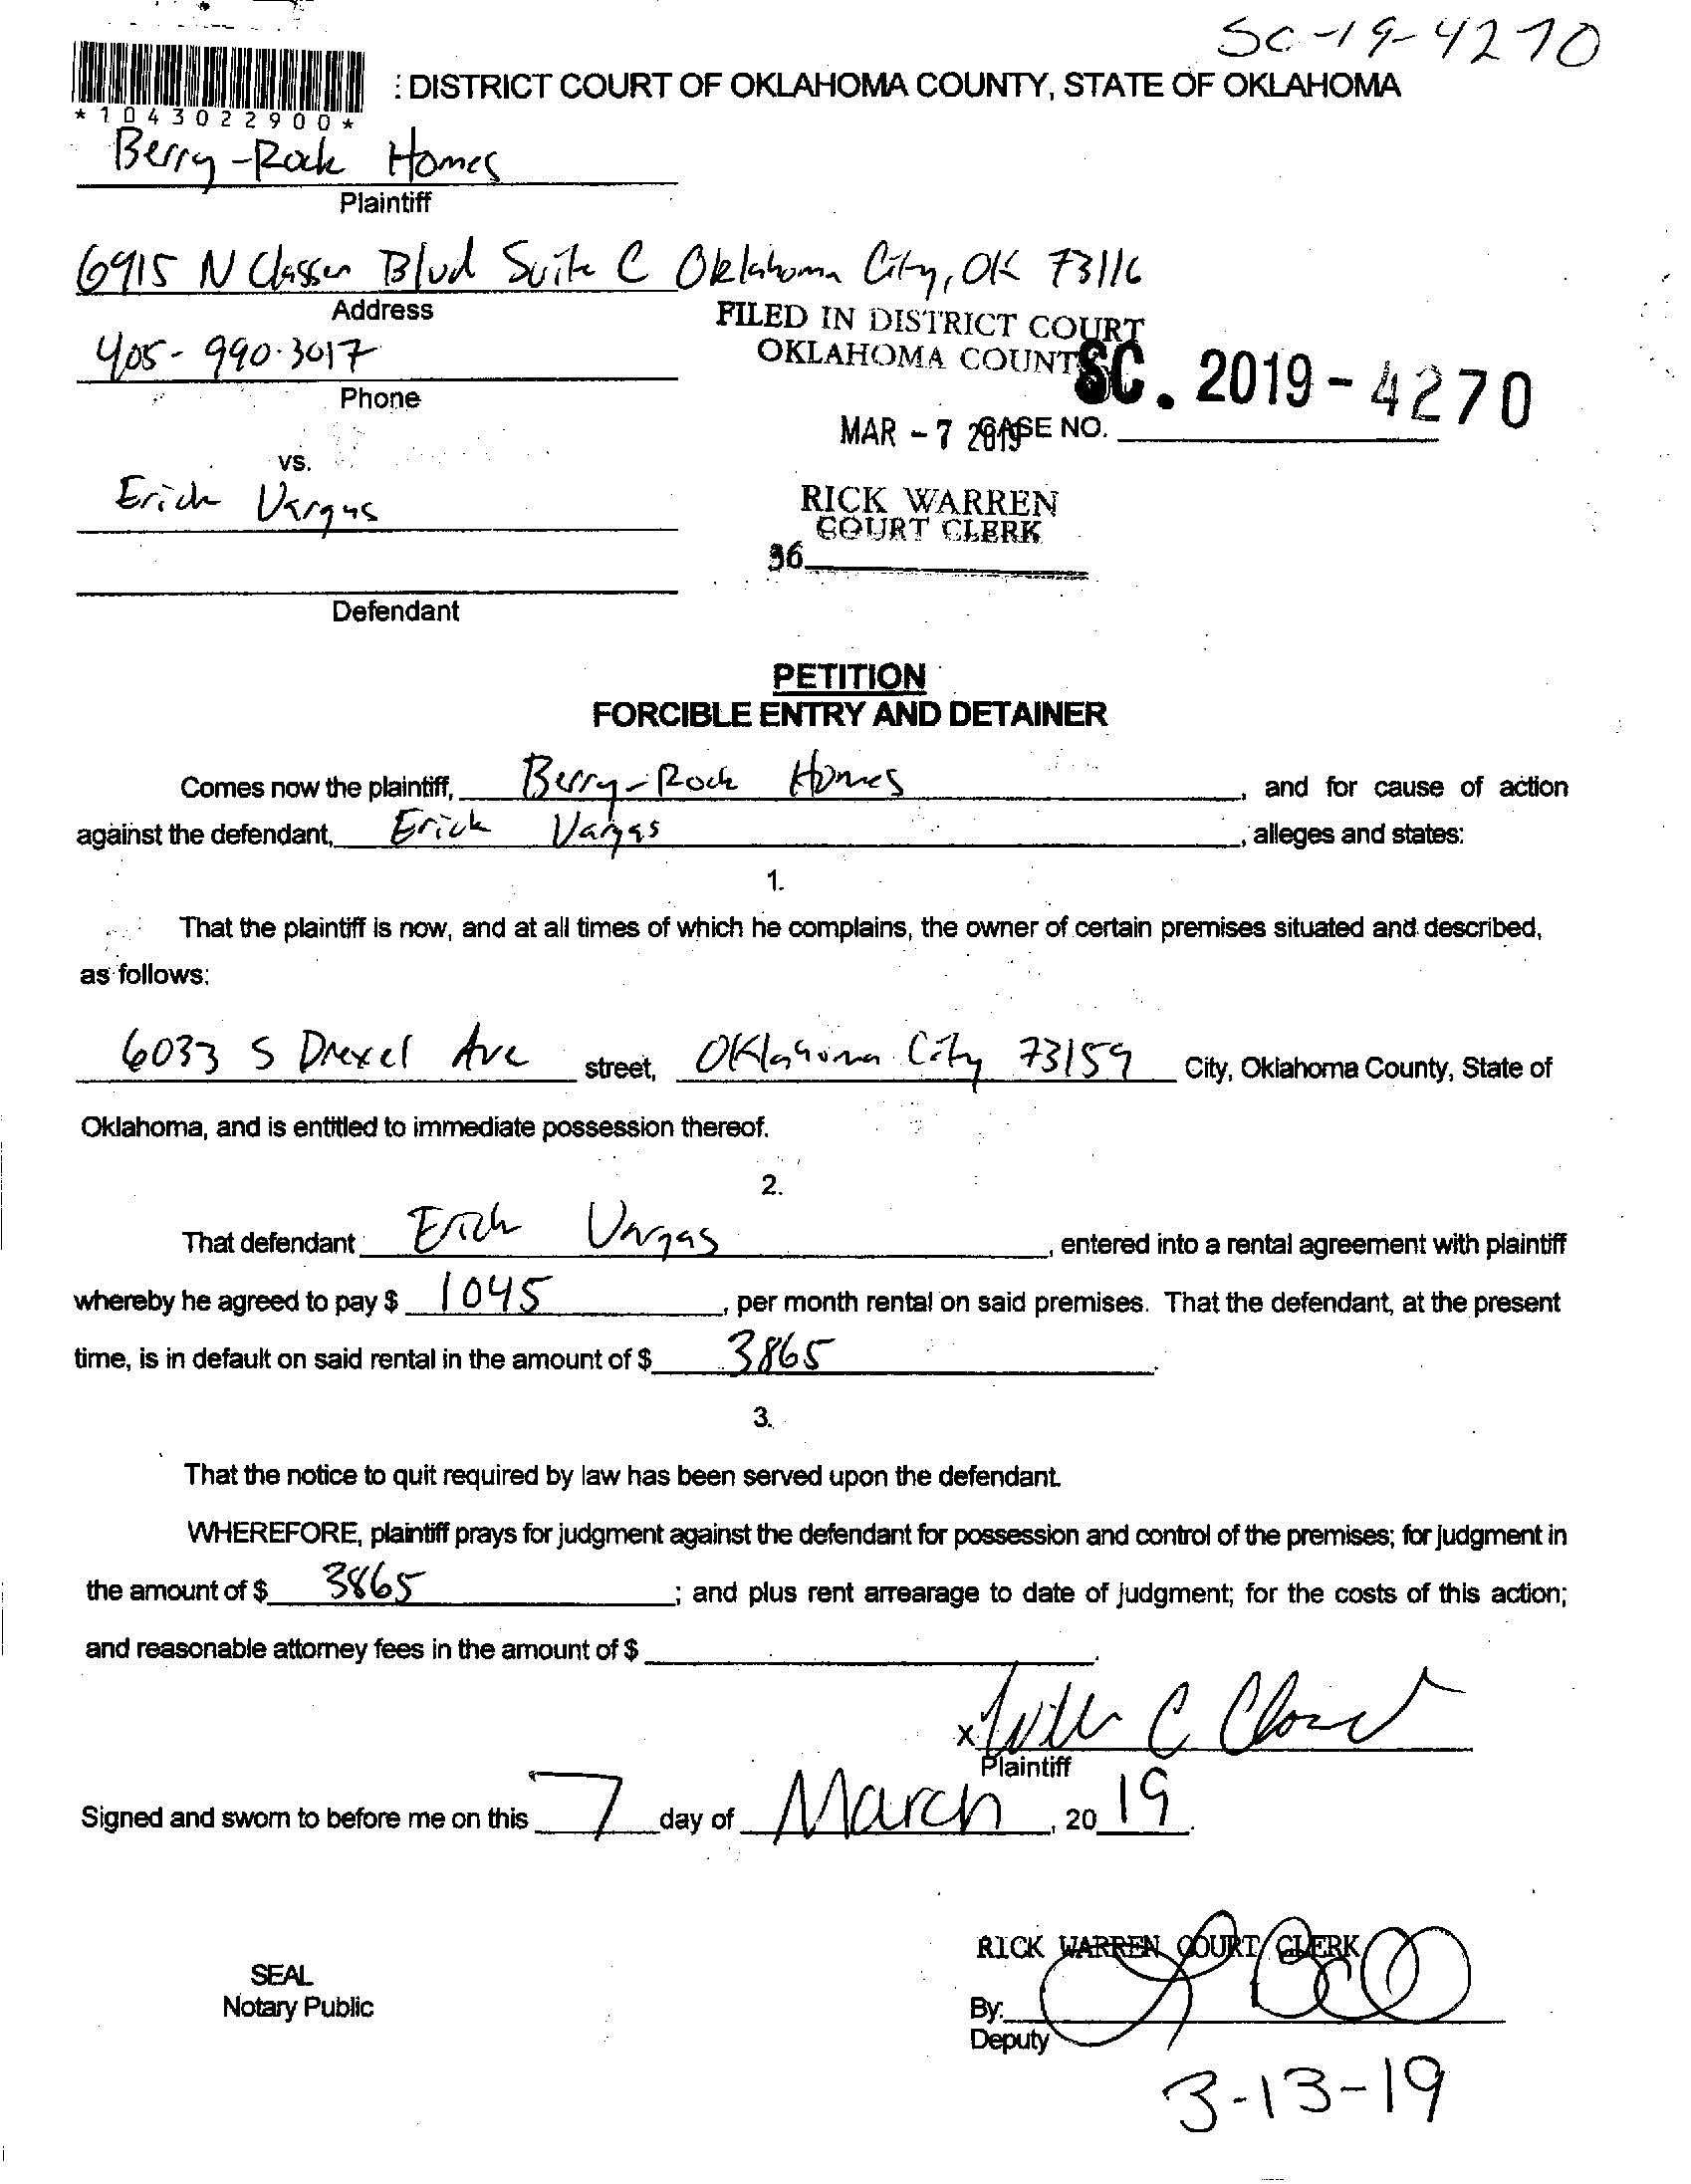 SC-19-4270
: DISTRICT COURT OF OKLAHOMA COUNTY, STATE OF OKLAHOMA
*1043022900*
Berry-Rock Homes
Plaintiff
6915 N Classen Blvd Suite C Oklahoma City, OK 73116
Address
FILED IN DISTRICT COURT
OKLAHOMA COUNTY
405-990-3017
SC. 2019-4270
Phone
MAR - 7 2019
CASE NO.
vs.
Erick Vargas
RICK WARREN
COURT CLERK
36
Defendant
PETITION
FORCIBLE ENTRY AND DETAINER
Comes now the plaintiff, Berry-Rock Homes, and for cause of action
against the defendant, Erick Vargas, alleges and states:
1.
That the plaintiff is now, and at all times of which he complains, the owner of certain premises situated and described,
as follows:
6033 S Drexel Ave street, Oklahoma City 73159 City, Oklahoma County, State of
Oklahoma, and is entitled to immediate possession thereof.
2.
That defendant Erick Vargas, entered into a rental agreement with plaintiff
whereby he agreed to pay $ 1045, per month rental on said premises. That the defendant, at the present
time, is in default on said rental in the amount of $ 3865.
3.
That the notice to quit required by law has been served upon the defendant.
WHEREFORE, plaintiff prays for judgment against the defendant for possession and control of the premises; for judgment in
the amount of $ 3865; and plus rent arrearage to date of judgment; for the costs of this action;
and reasonable attorney fees in the amount of $.
x
Plaintiff
Signed and sworn to before me on this 7 day of March, 20 19.
RICK WARREN COURT CLERK
SEAL
Notary Public
By:
Deputy
3-13-19